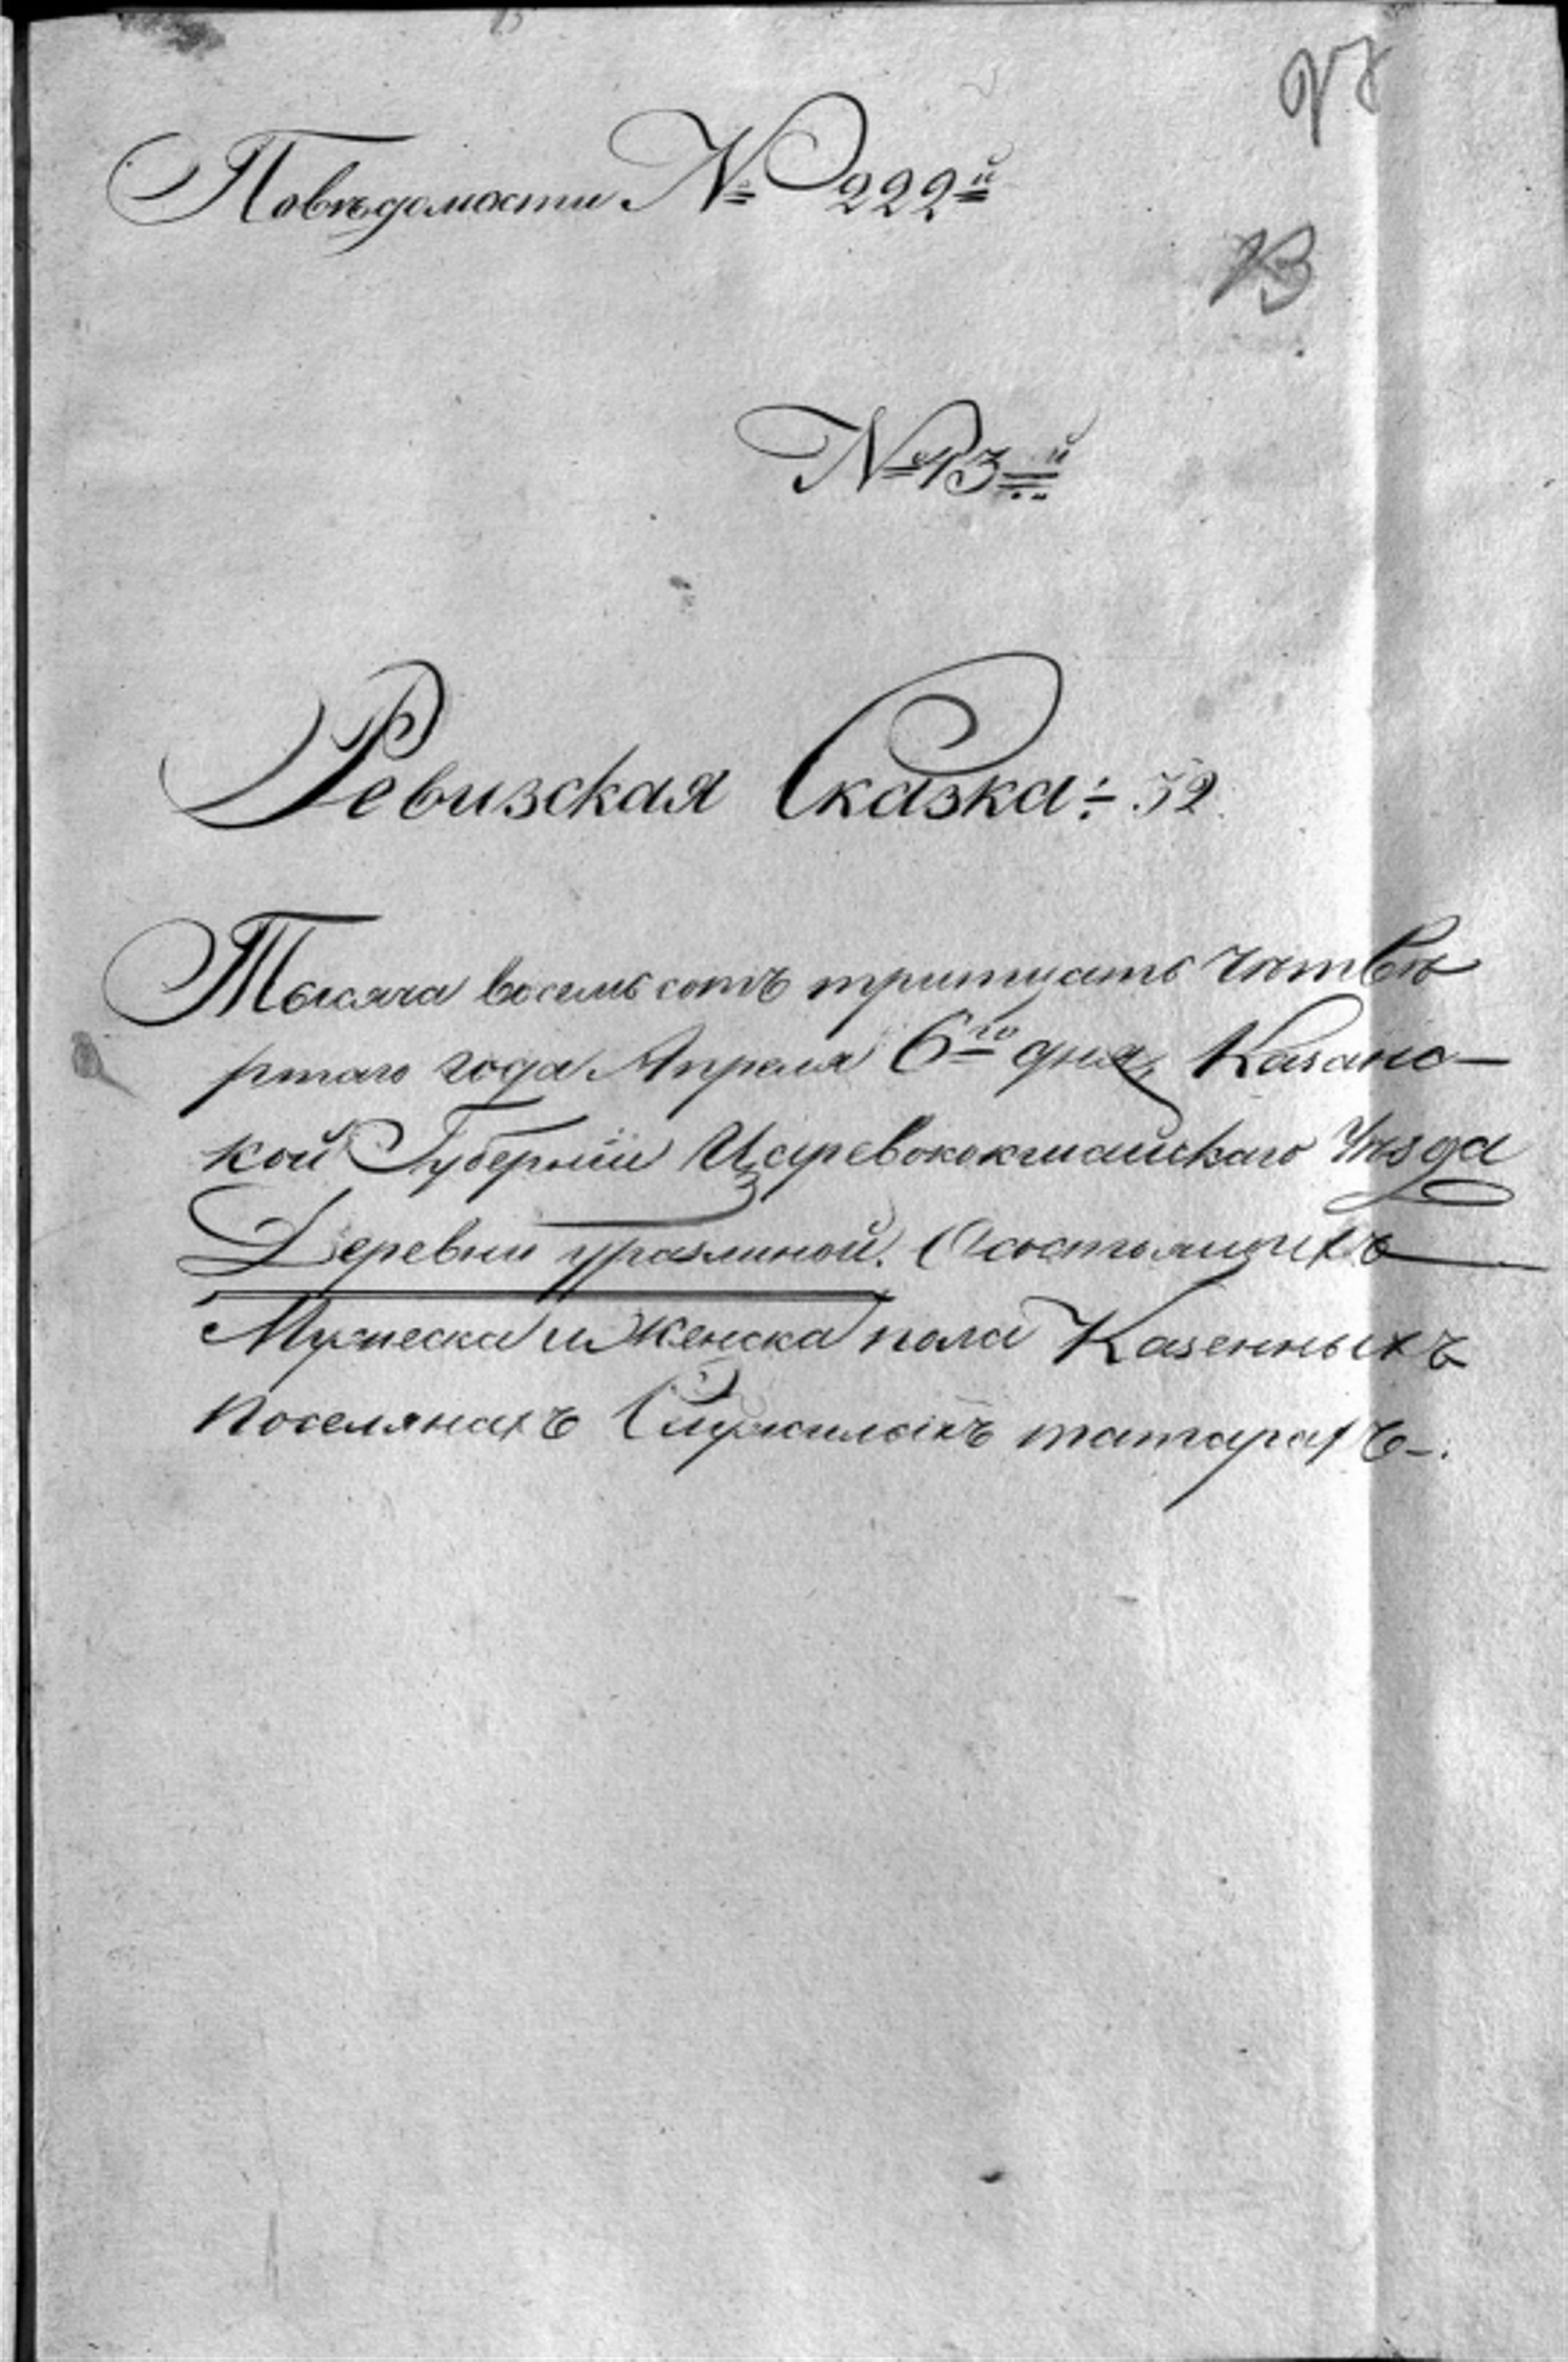 Поведомости № 222й
13
№ 13й
Ревизская Сказка: 52
Тысяча восемь сотъ тритцать четве
ртаго года Апреля 6го дня, Казанс-
кой Губернии Царевококшайскаго Уезда
Деревни уразлиной. Осостоящихъ
Мужеска и Женска пола Казенныхъ
поселянахъ Служилыхъ татарахъ-.